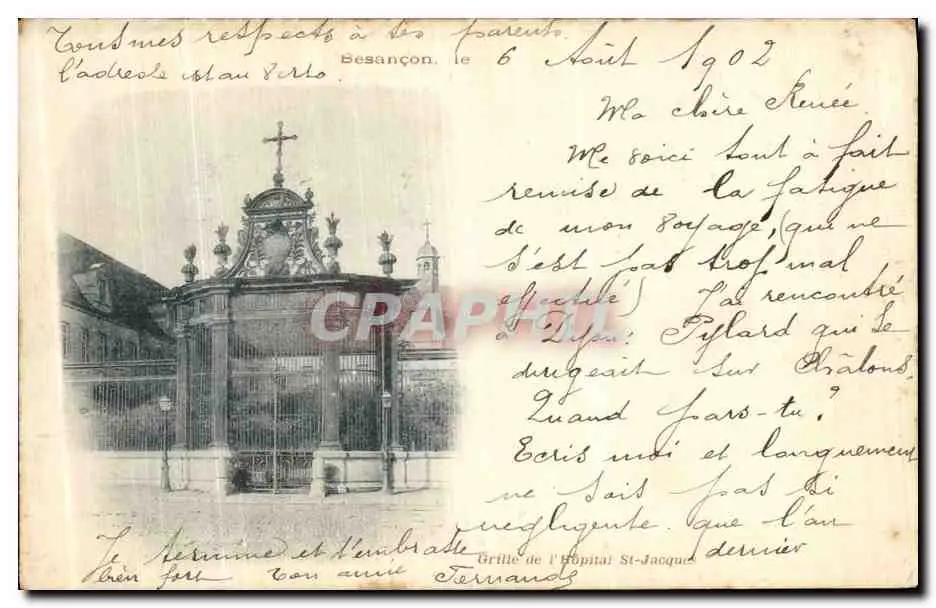 Tous mes respects à tes parents.
l'adresse est au verso
Besançon, le 6 Août 1902
Ma chère Renée
Me voici tout à fait
remise de la fatigue
de mon voyage, (qui ne
s'est pas trop mal
effectué) J'ai rencontré
à Dijon: Pylard qui se
dirigeait sur Châlons.
Quand pars-tu?
Ecris moi et longuement
ne sois pas si
negligente que l'an
dernier
Je termine et t'embrasse
bien fort Ton amie Fernande
Grille de l'Hôpital St-Jacques
CPAPHIL